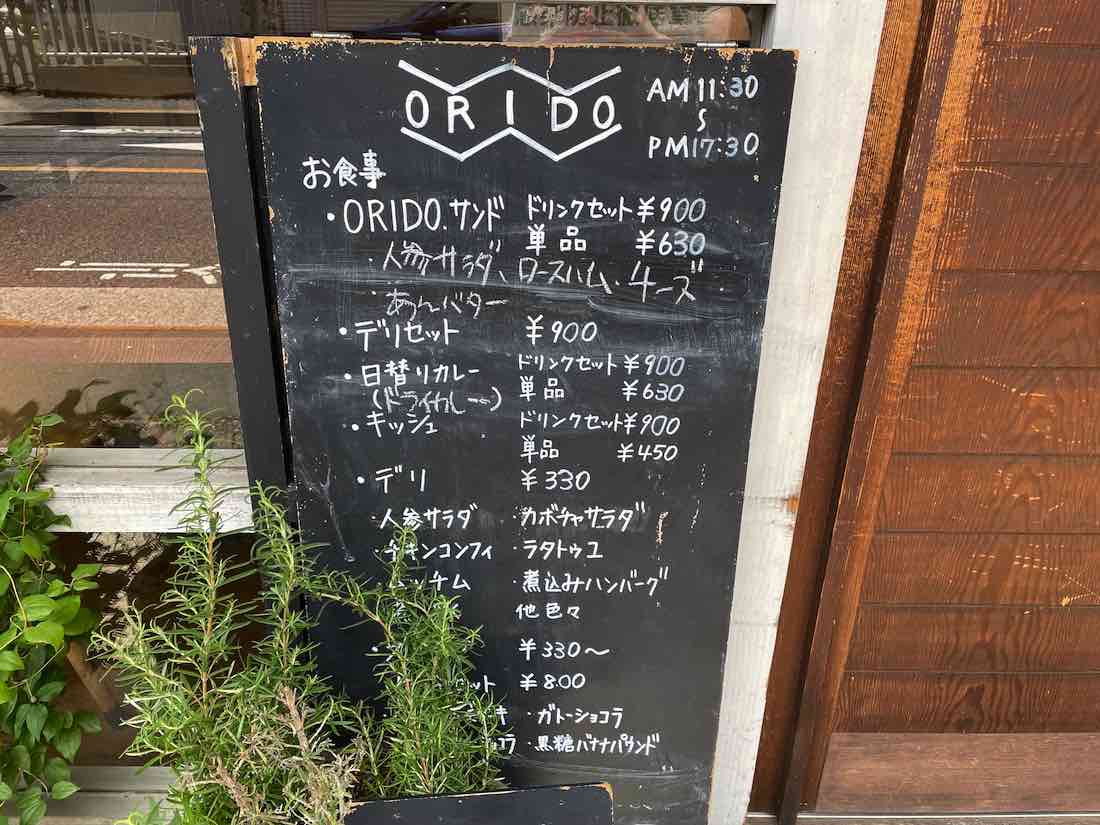 ORIDO
AM 11:30
〜
PM 17:30
お食事
・ORIDO.サンド ドリンクセット ¥900
単品 ¥630
・人参サラダ、ロースハム、チーズ
・あんバター
・デリセット ¥900
・日替りカレー ドリンクセット ¥900
(ドライカレー) 単品 ¥630
・キッシュ ドリンクセット ¥900
単品 ¥450
・デリ ¥330
・人参サラダ ・カボチャサラダ
・チキンコンフィ ・ラタトゥユ
チム ・煮込みハンバーグ
他色々
¥330〜
ット ¥800
キ ・ガトーショコラ
ラ ・黒糖バナナパウンド